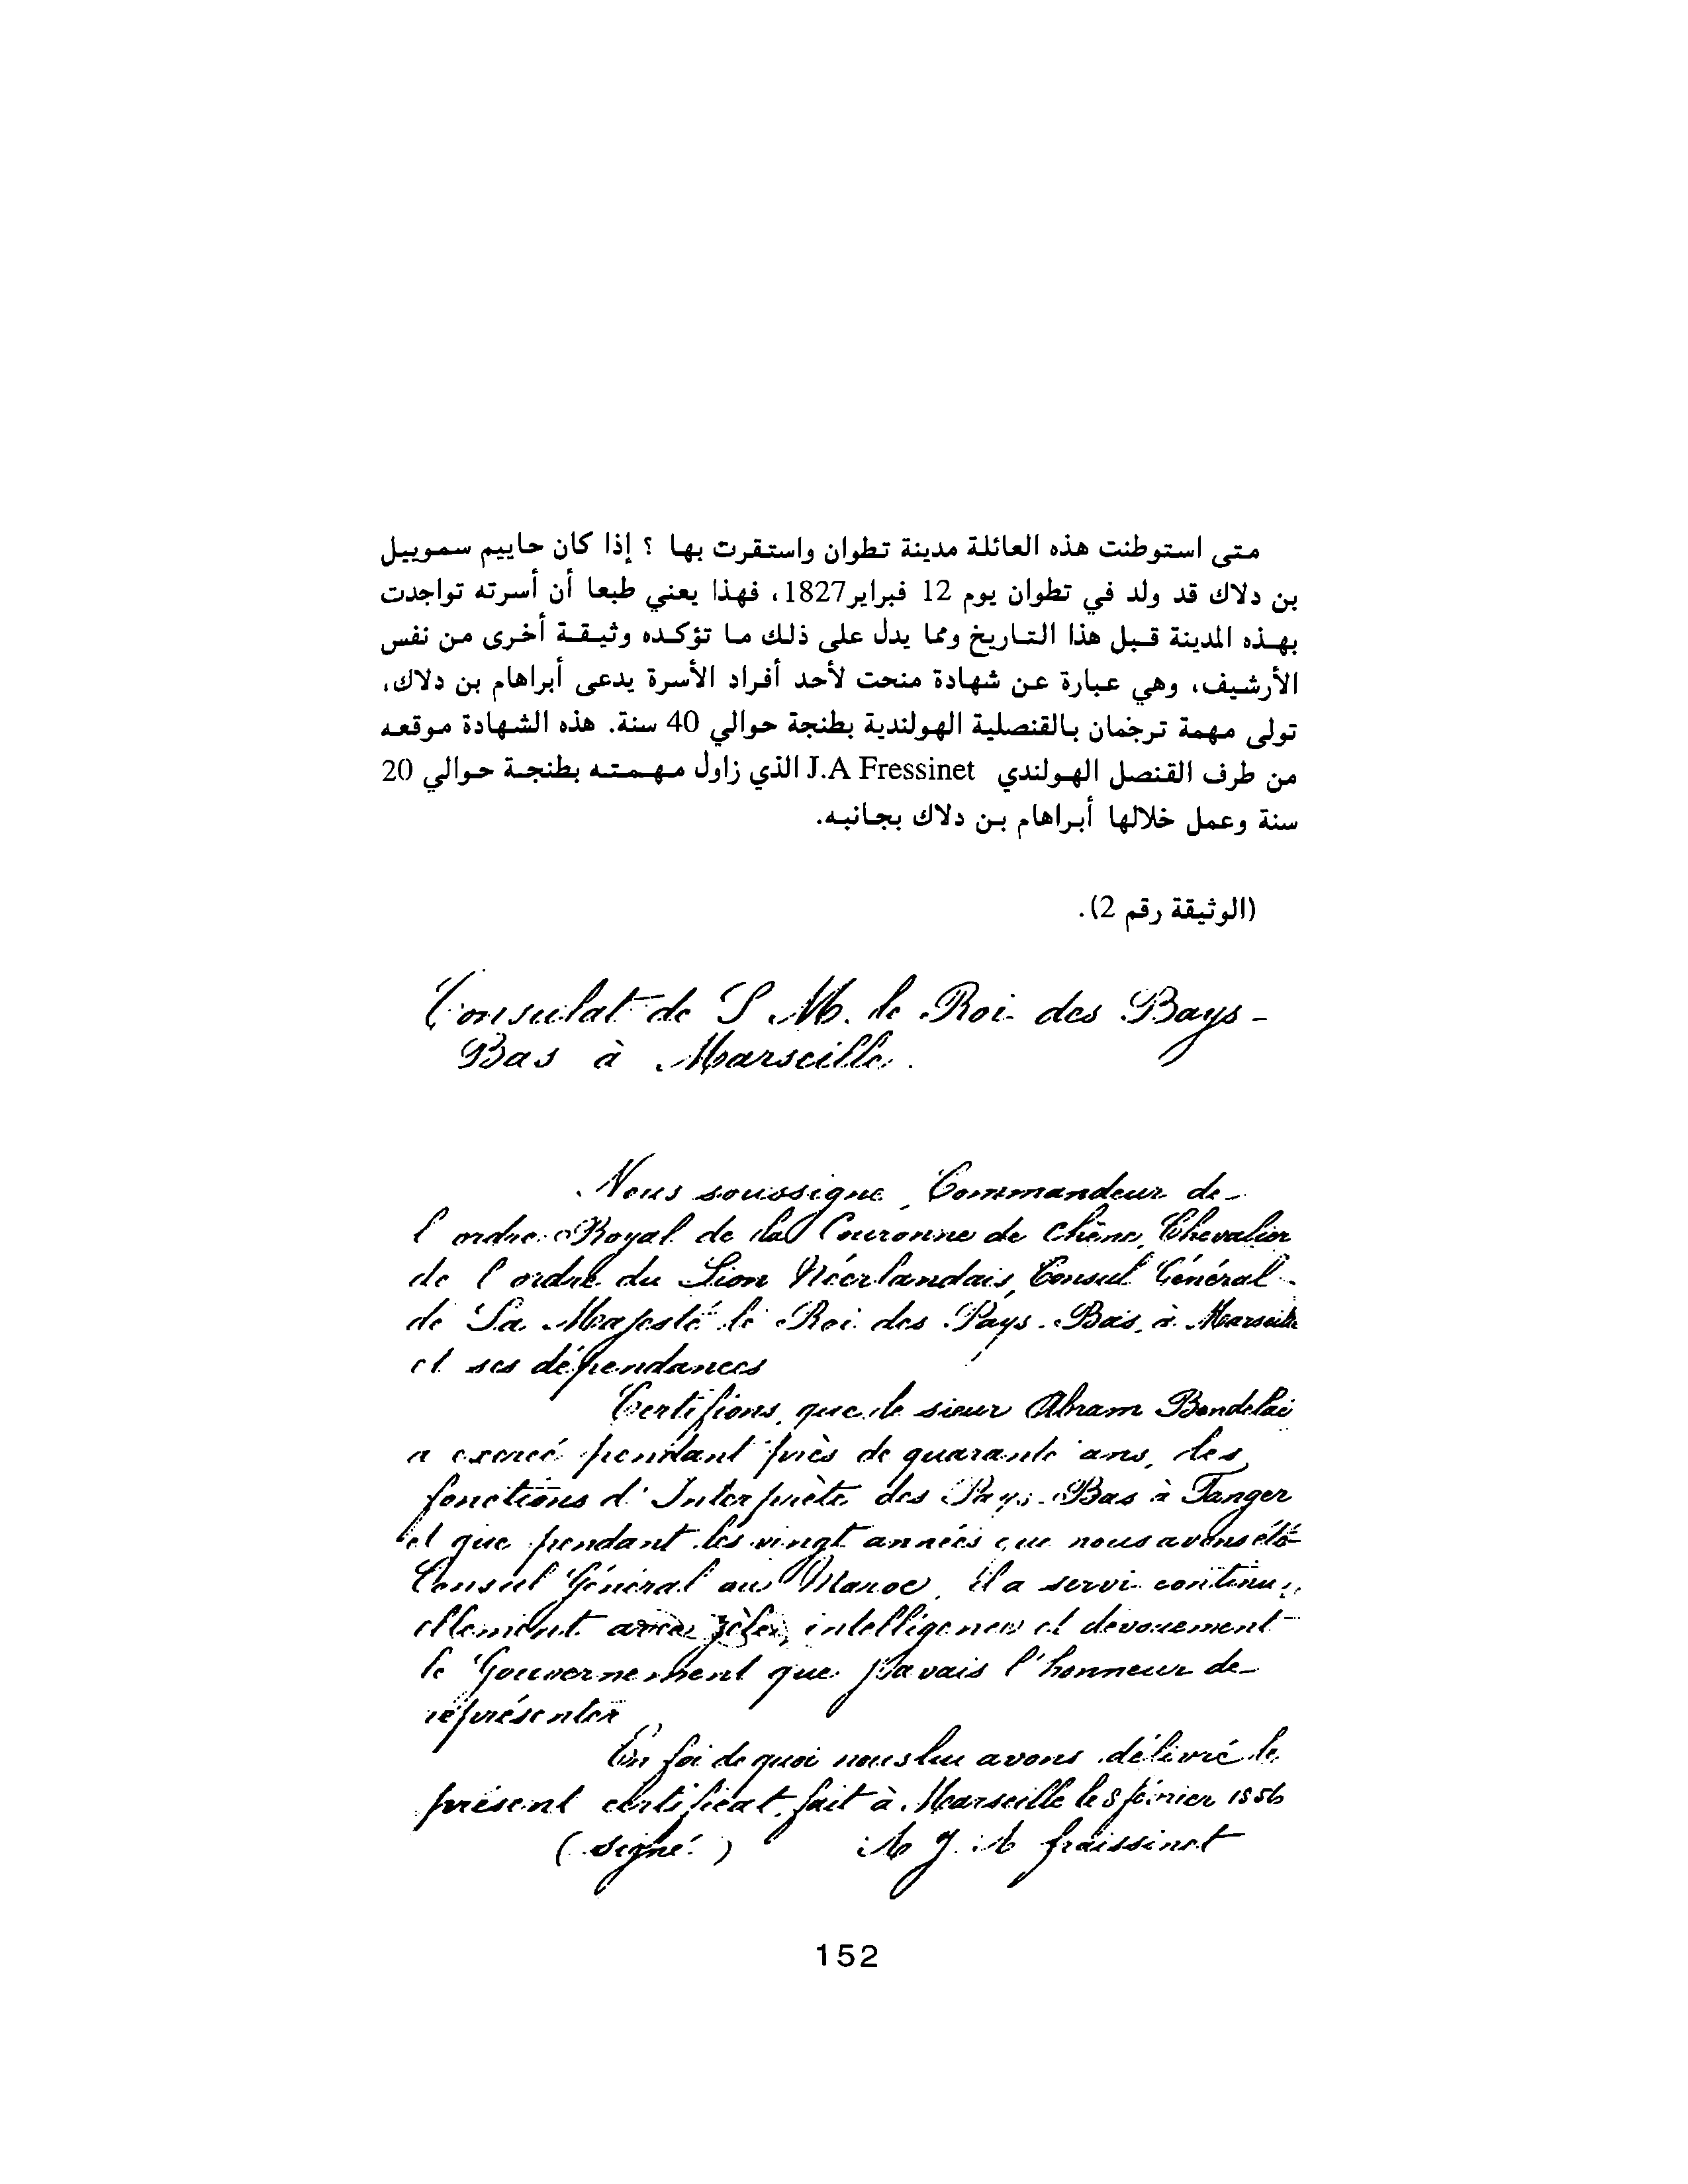 متى استوطنت هذه العائلة مدينة تطوان واستقرت بها ؟ إذا كان حاييم سمويیل
بن دلاك قد ولد في تطوان يوم 12 فبراير1827، فهذا يعني طبعا أن أسرته تواجدت
بهذه المدينة قبل هذا التاريخ ومما يدل على ذلك ما تؤكده وثيقة أخرى من نفس
الأرشيف، وهي عبارة عن شهادة منحت لأحد أفراد الأسرة يدعى أبراهام بن دلاك،
تولى مهمة ترجمان بالقنصلية الهولندية بطنجة حوالي 40 سنة. هذه الشهادة موقعه
من طرف القنصل الهولندي J.A Fressinet الذي زاول مهمته بطنجة حوالي 20
سنة وعمل خلالها أبراهام بن دلاك بجانبه.
(الوثيقة رقم 2).
Consulat de S M. le Roi des Bays-
Bas à Marseille.
Nous soussigné, Commandeur de
l'ordre Royal de la Couronne de chêne, Chevalier
de l'ordre du Lion Néerlandais, Consul Général
de Sa Majesté le Roi des Pays-Bas, à Marseille
et ses dépendances
Certifions, que le sieur Abram Bendelac
a exercé pendant près de quarante ans, les
fonctions d'Interprète des Pays-Bas à Tanger
et que pendant les vingt années que nous avons été
Consul Général au Maroc, il a servi continu-
ellement avec zèle, intelligence et devouement
le Gouvernement que j'avais l'honneur de
représenter
En foi de quoi nous lui avons délivré le
présent certificat, fait à Marseille le 8 février 1856
(signé) A J. A fraissinet
152